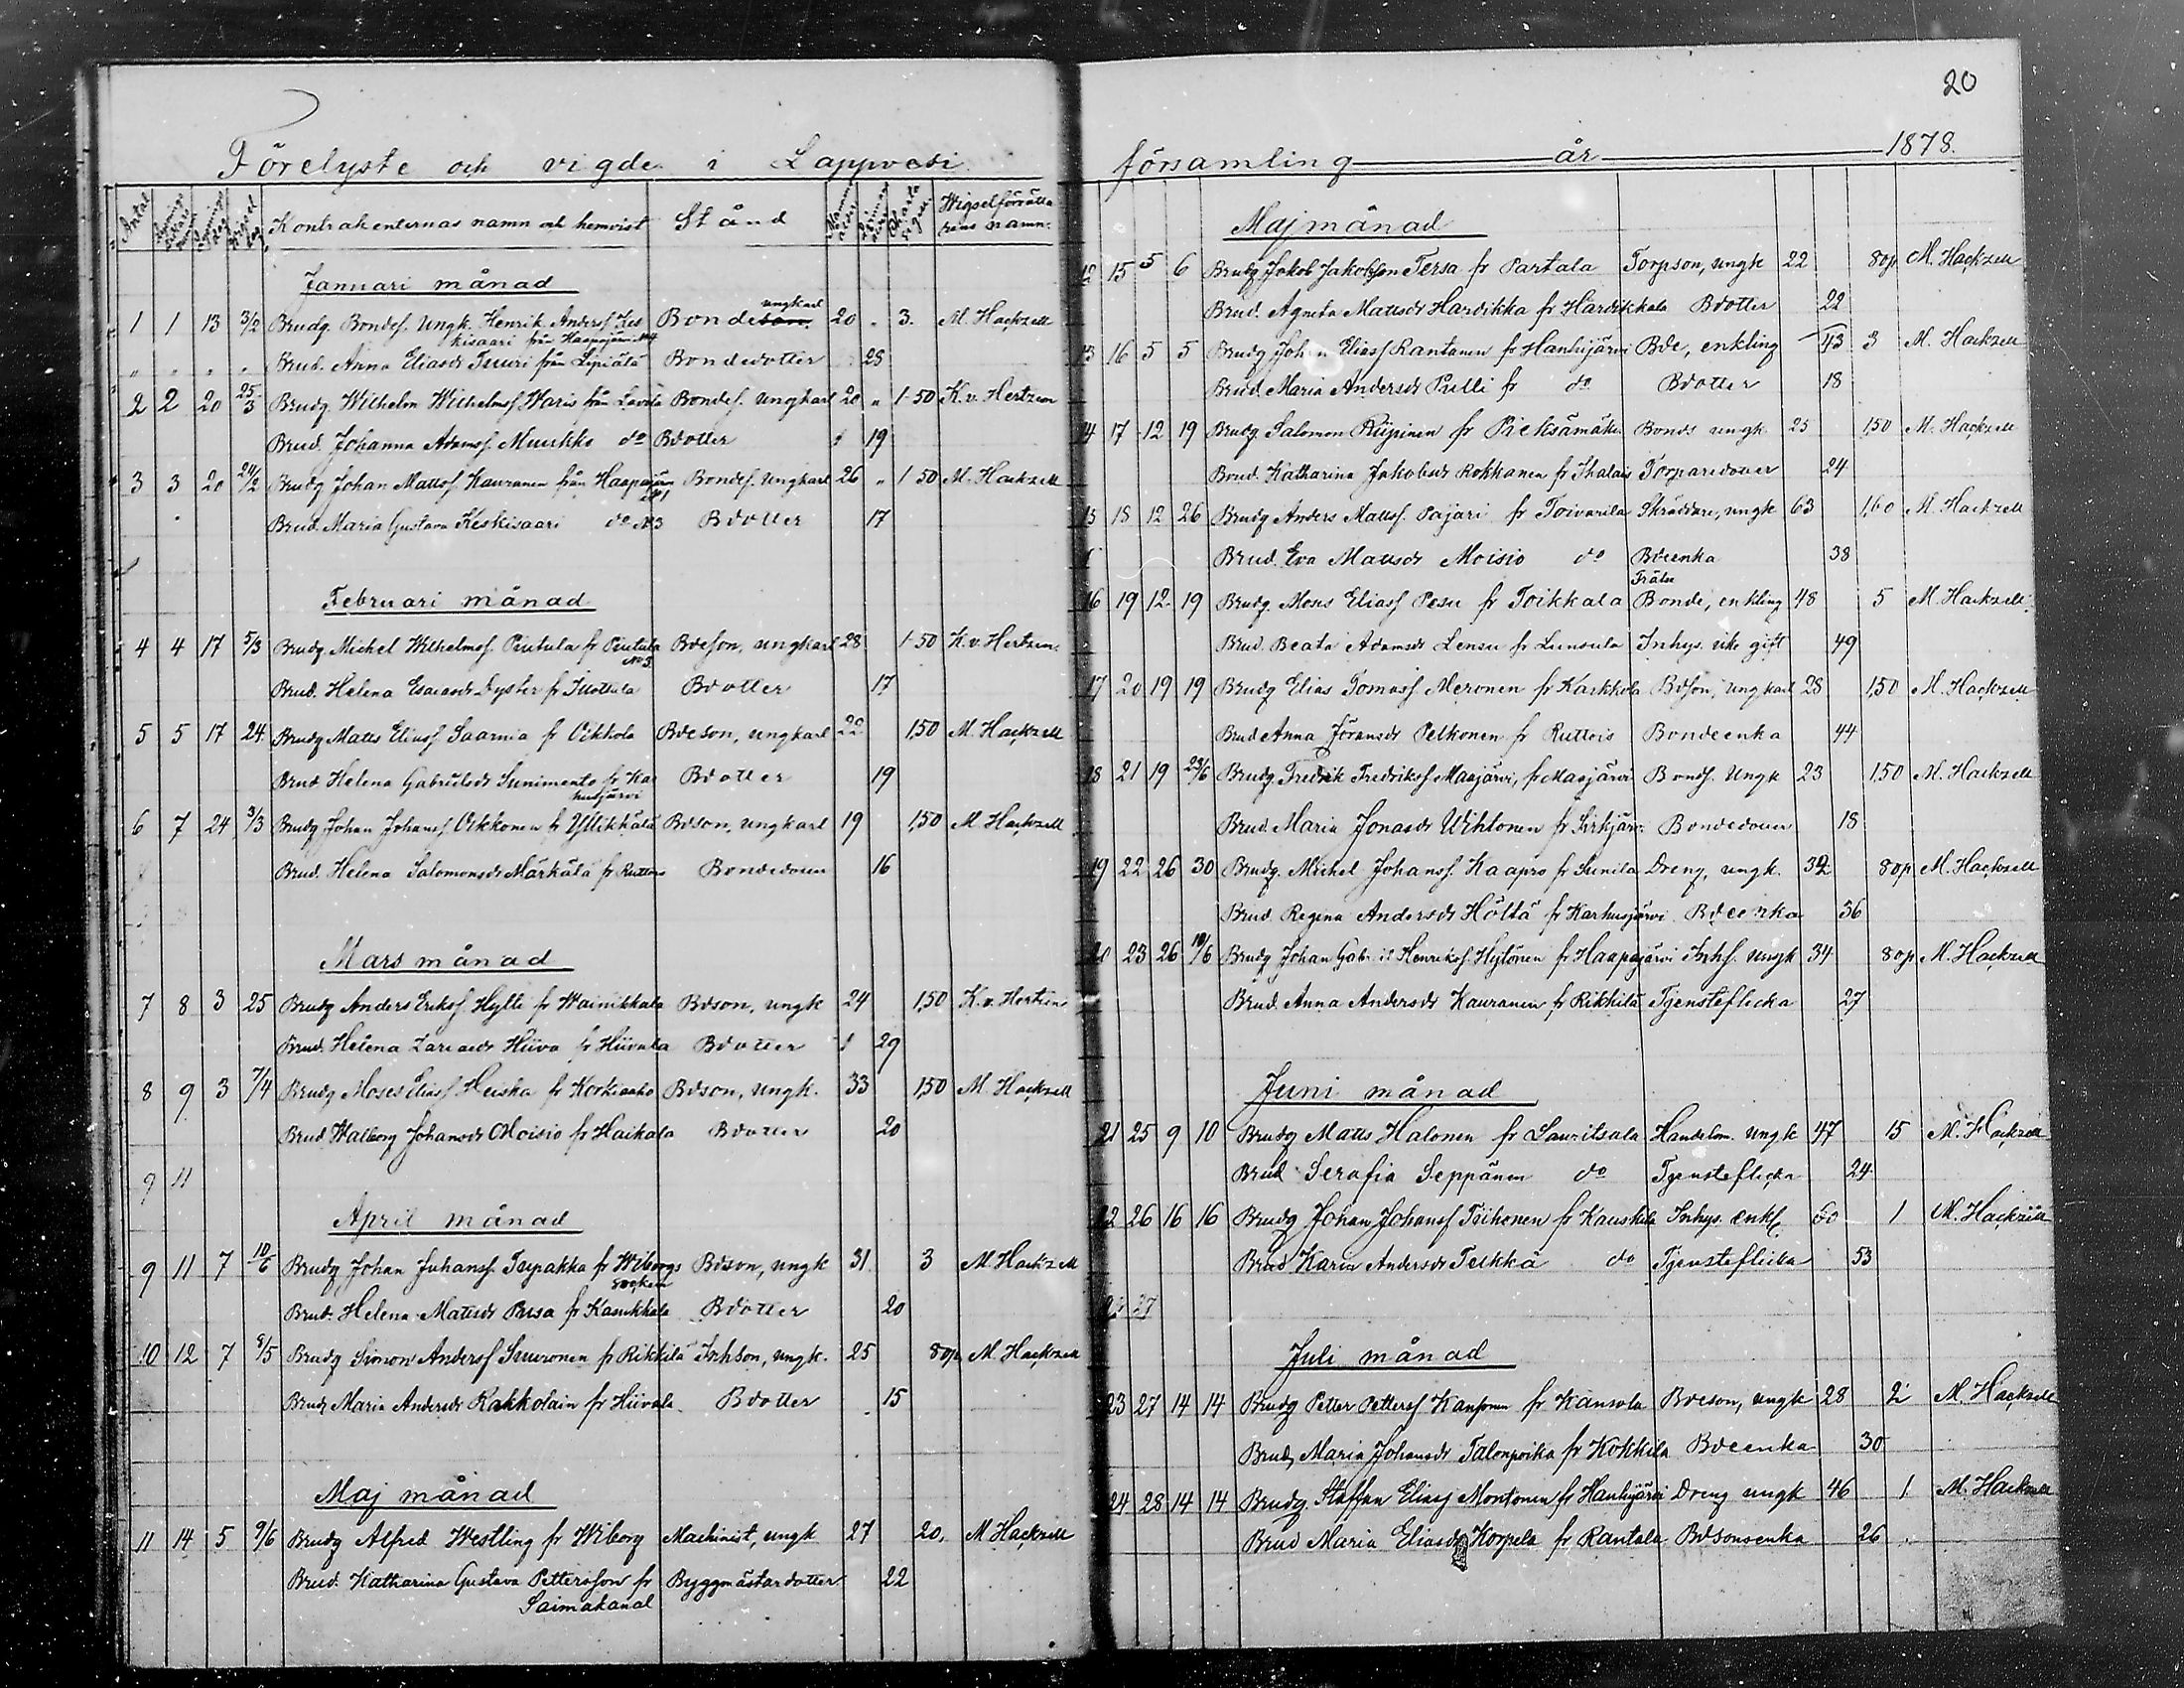 20
Förelyste och vigde i Lappvesi
församling år 1878.
Antal Kontrahenternas namn och hemvist Stånd Wigselförrätta
rens namn.
Januari månad
1 1 13 3/2 Brudg. Bondes. Ungk. Henrik Anderss Kes Bondeson. ungkarl 20 " 3. M. Hackzell
kisaari från Haapajärvi N4
" " " " Brud. Anna Eliasdr Tuuri från Bondedotter 28
2 2 20 25/3 Brudg. Wilhelm Wilhelmss. Haris från Lavola Bondes. Ungkarl 20 " 1 50 K. v. Hertzen
Brud. Johanna Adamss. Muukko do Bdotter 19
3 3 20 24/2 Brudg Johan Mattss. Kauranen från Haapajärvi Bondes. Ungkarl 26 " 1 50 M. Hackzell
Brud. Maria Gustava Keskisaari do N3 Bdotter 17
Februari månad
4 4 17 5/3 Brudg Michel Wilhelmss. Piutula fr Piutula Bdeson, ungkarl 28 1 50 K. v. Hertzen.
N 3.
Brud. Helena Esaiasdr Dyster fr Bdotter 17
5 5 17 24. Brudg Matts Eliass Saarnia fr Oikkola Bdeson, ungkarl 22 1,50 M. Hackzell
Brud Helena Gabrielsdr Sunimento fr Kar Bdotter 19
husjärvi
6 7 24 3/3 Brudg Johan Johanss Oikkonen fr Yllikkälä Bdson, ungkarl 19 1,50 M Hackzell
Brud. Helena Salomonsdr Märkälä fr Ruttois Bondedotter 16
Mars månad
7 8 3 25 Brudg Anders Erikss. Hylli fr Wainikkala Bdson, ungk 24 1,50 K. v. Hertzen
Brud. Helena Hiiva fr Hiivala Bdotter 29
8 9 3 7/4 Brudg Moses Eliass Heiska fr Korkiaaho Bdson, Ungk. 33 1,50 M. Hackzell
Brud Walborg Johansdr Moisio fr Haikala Bdotter 20
9 11
April månad
9 11 7 10/6 Brudg Johan Johanss. Tupakka fr Wiborgs Bdson, ungk 31. 3 M. Hackzell
socken
Brud. Helena Mattsdr Pursa fr Kasukkala Bdotter 20
10 12 7 9/5 Brudg Simon Anderss Suuronen fr Rikkilä Inhson, ungk. 25 80p M. Hackzell
Brud Maria Andersdr Rakkolain fr Hiivala Bdotter 15
Maj månad
11 14 5 9/6 Brudg Alfred Westling fr Wiborg Machinist, ungk 27 20. M Hackzell
Brud. Katharina Gustava Pettersson fr Byggmästardotter 22
Saimakanal
Maj månad
12 15 5 6 Brudg Jakob Jakobsson Tersa fr Partala Torpson, ungk 22 80p M. Hackzell
Brud. Agneta Mattsdr Hardikka fr Hardikkala Bdotter 22
13 16 5 5 Brudg Johan Eliass Rantanen fr Hanhijärvi Bde, enkling 43 3 M. Hackzell
Brud. Maria Andersdr Pulli fr do Bdotter 18
14 17 12 19 Brudg. Salomon Riipinen fr Pieksämäki Bonds ungk 25 1,50 M. Hackzell
Brud. Katharina Jakobsdr Rokkanen fr Ihalais Torparedotter 24
15 18 12 26 Brudg Anders Mattss. Pajari fr Toivarila Skräddare, ungk 63 1,60 M. Hackzell
Brud. Eva Mattsdr Moisio do Bdeenka 38
16 19 12 19 Brudg. Moses Eliass Pesu fr Toikkala Bonde, enkling 48 5 M. Hackzell
Brud. Beata Adamsdr Lensu fr Lensula Inhys. icke gift 49
17 20 19 19 Brudg Elias Tomass Meronen fr Karkkola Bdson, Ungkarl 28 1,50 M. Hackzell
Brud Anna Göransdr Pelkonen fr Ruttois Bondeenka 44
18 21 19 23/6 Brudg Fredrik Fredrikss Maajärvi, fr Maajärvi Bonds. Ungk 23 1,50 M. Hackzell
Brud. Maria Jonasdr Wihtonen fr Sirkjärvi Bondedotter 18
19 22 26 30 Brudg. Michel Johanss. Kaapro fr Sunila Dreng, ungk. 32 80p M. Hackzell
Brud. Regina Andersdr Hölttä fr Karhusjärvi Bdeenka 36
20 23 26 10/6 Brudg Johan Gabriel Henrikss. Hytönen fr Haapajärvi Inhs. Ungk 34 80p M. Hackzell
Brud. Anna Andersdr Kauranen fr Rikkilä Tjensteflicka 27
Juni månad
21 25 9 10 Brudg Matts Halonen fr Lauritsala Handelsm. ungk 47 15 M. Hackzell
Brud Serafia Seppänen do Tjensteflicka 24
22 26 16 16 Brudg Johan Johanss Tiihonen fr Kauskila Inhys. enkl 60 1 M. Hackzell
Brud Karin Andersdr Tukkä do Tjensteflicka 53
23 27
Juli månad
23 27 14 14 Brudg Petter Petterss Kansonen fr Kansola Bdeson, ungk 28 2 M. Hackzell
Brud, Maria Johansdr Talonpoika fr Kokkila Bdeenka 30
24 28 14 14 Brudg. Staffan Eliass Montonen fr Hanhijärvi Dreng ungk 46 1 M. Hackzell
Brud Maria Eliasdr Korpela fr Rantala Bdsonsenka 26